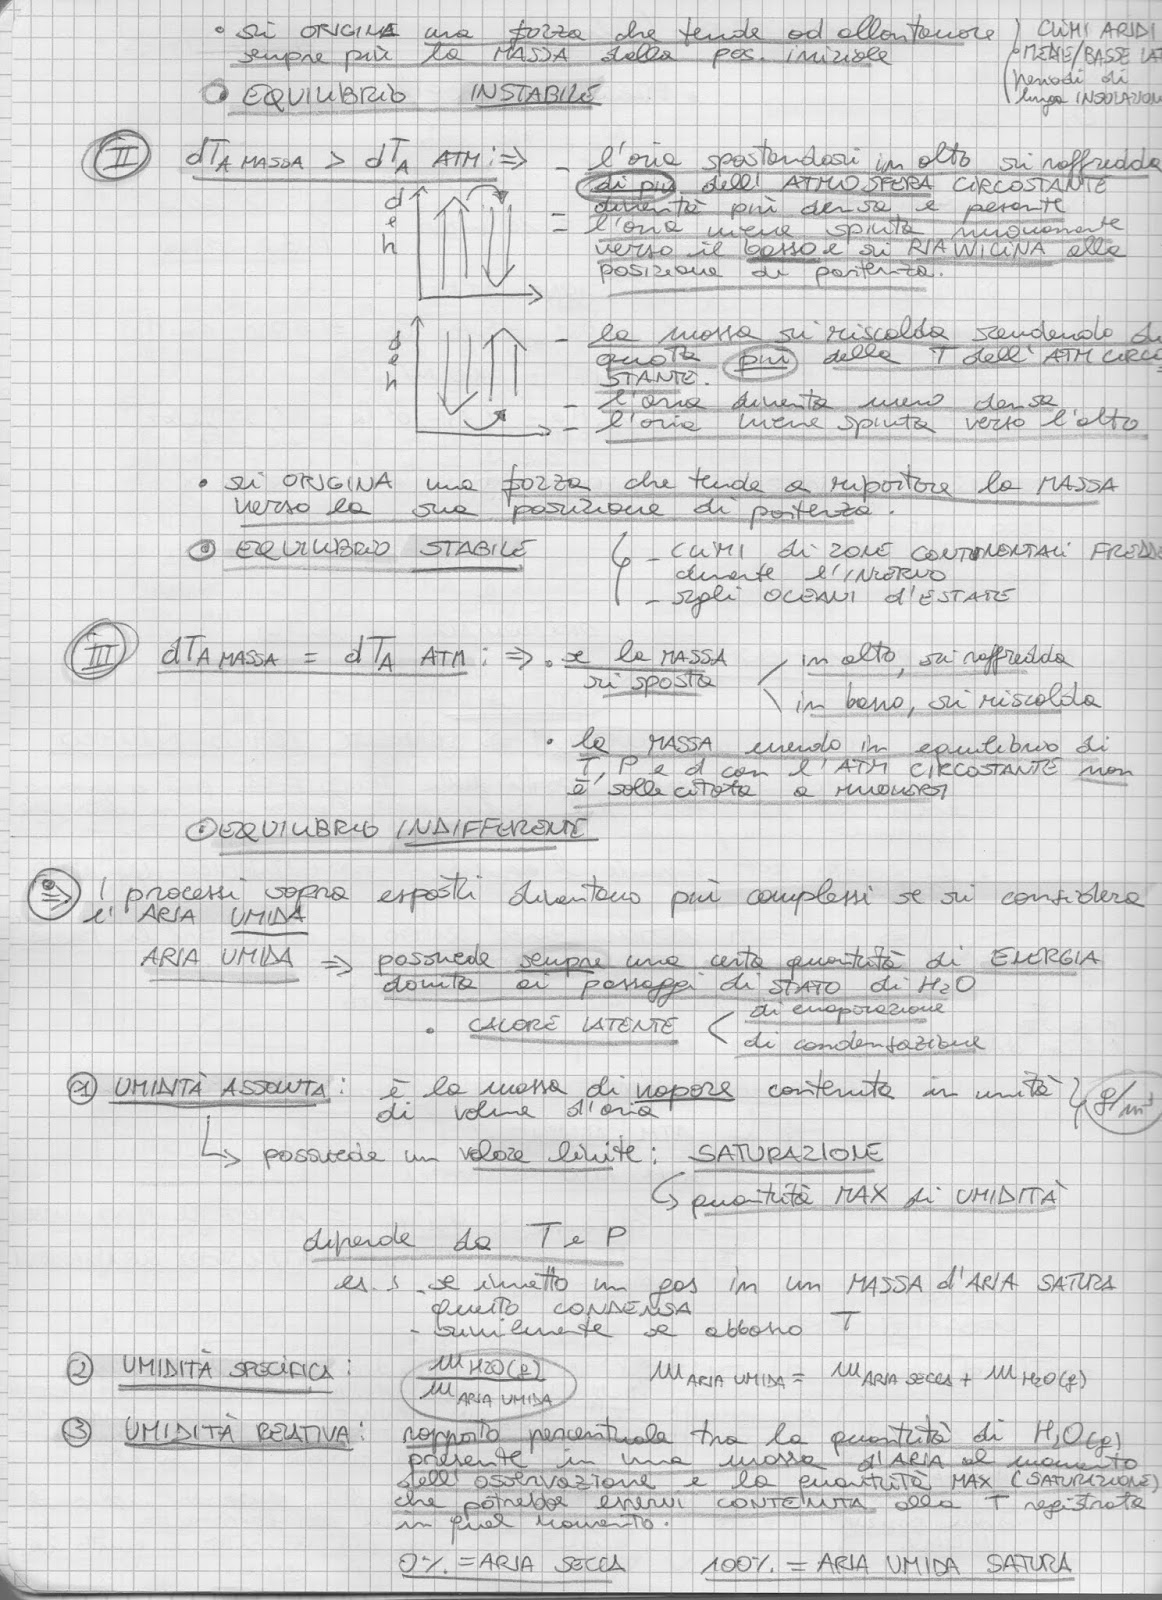 • si ORIGINA una forza che tende ad allontanare
sempre più la MASSA dalla pos. iniziale
CLIMI ARIDI
• MEDIE/BASSE LAT
periodi di
lunga INSOLAZION
EQUILIBRIO INSTABILE
II dTA MASSA > dTA ATM: ⇒ - l'aria spostandosi in alto si raffredda
di più dell'ATMOSFERA CIRCOSTANTE
diventa più densa e pesante
= l'aria viene spinta nuovamente
verso il basso e si RIAVVICINA alla
posizione di partenza.
d e h
- la massa si riscalda scendendo di
quota più della T dell'ATM CIRCO
STANTE.
- l'aria diventa meno densa
- l'aria viene spinta verso l'alto
d e h
• si ORIGINA una forza che tende a riportare la MASSA
verso la sua posizione di partenza.
EQUILIBRIO STABILE
- CLIMI di ZONE CONTINENTALI FREDDE
durante l'INVERNO
- sugli OCEANI d'ESTATE
III dTA MASSA = dTA ATM: ⇒ • se la MASSA
si sposta
in alto, si raffredda
in basso, si riscalda
• la MASSA essendo in equilibrio di
T, P e d con l'ATM CIRCOSTANTE non
è sollecitata a muoversi
EQUILIBRIO INDIFFERENTE
⇒ I processi sopra esposti diventano più complessi se si considera
l'ARIA UMIDA
ARIA UMIDA ⇒ possiede sempre una certa quantità di ENERGIA
dovuta ai passaggi di STATO di H2O
• CALORE LATENTE
di evaporazione
di condensazione
1 UMIDITÀ ASSOLUTA: è la massa di vapore contenuta in unità
di volume d'aria
g/m³
↳ possiede un valore limite: SATURAZIONE
↳ quantità MAX di UMIDITÀ
dipende da T e P
es. : - se immetto un gas in un MASSA d'ARIA SATURA
questo CONDENSA
- similmente se abbasso T
2 UMIDITÀ SPECIFICA: mH2O(g)
mARIA UMIDA
mARIA UMIDA = mARIA SECCA + mH2O(g)
3 UMIDITÀ RELATIVA: rapporto percentuale tra la quantità di H2O(g)
presente in una massa d'ARIA al momento
dell'osservazione e la quantità MAX (SATURAZIONE)
che potrebbe esservi CONTENUTA alla T registrata
in quel momento.
0% = ARIA SECCA 100% = ARIA UMIDA SATURA